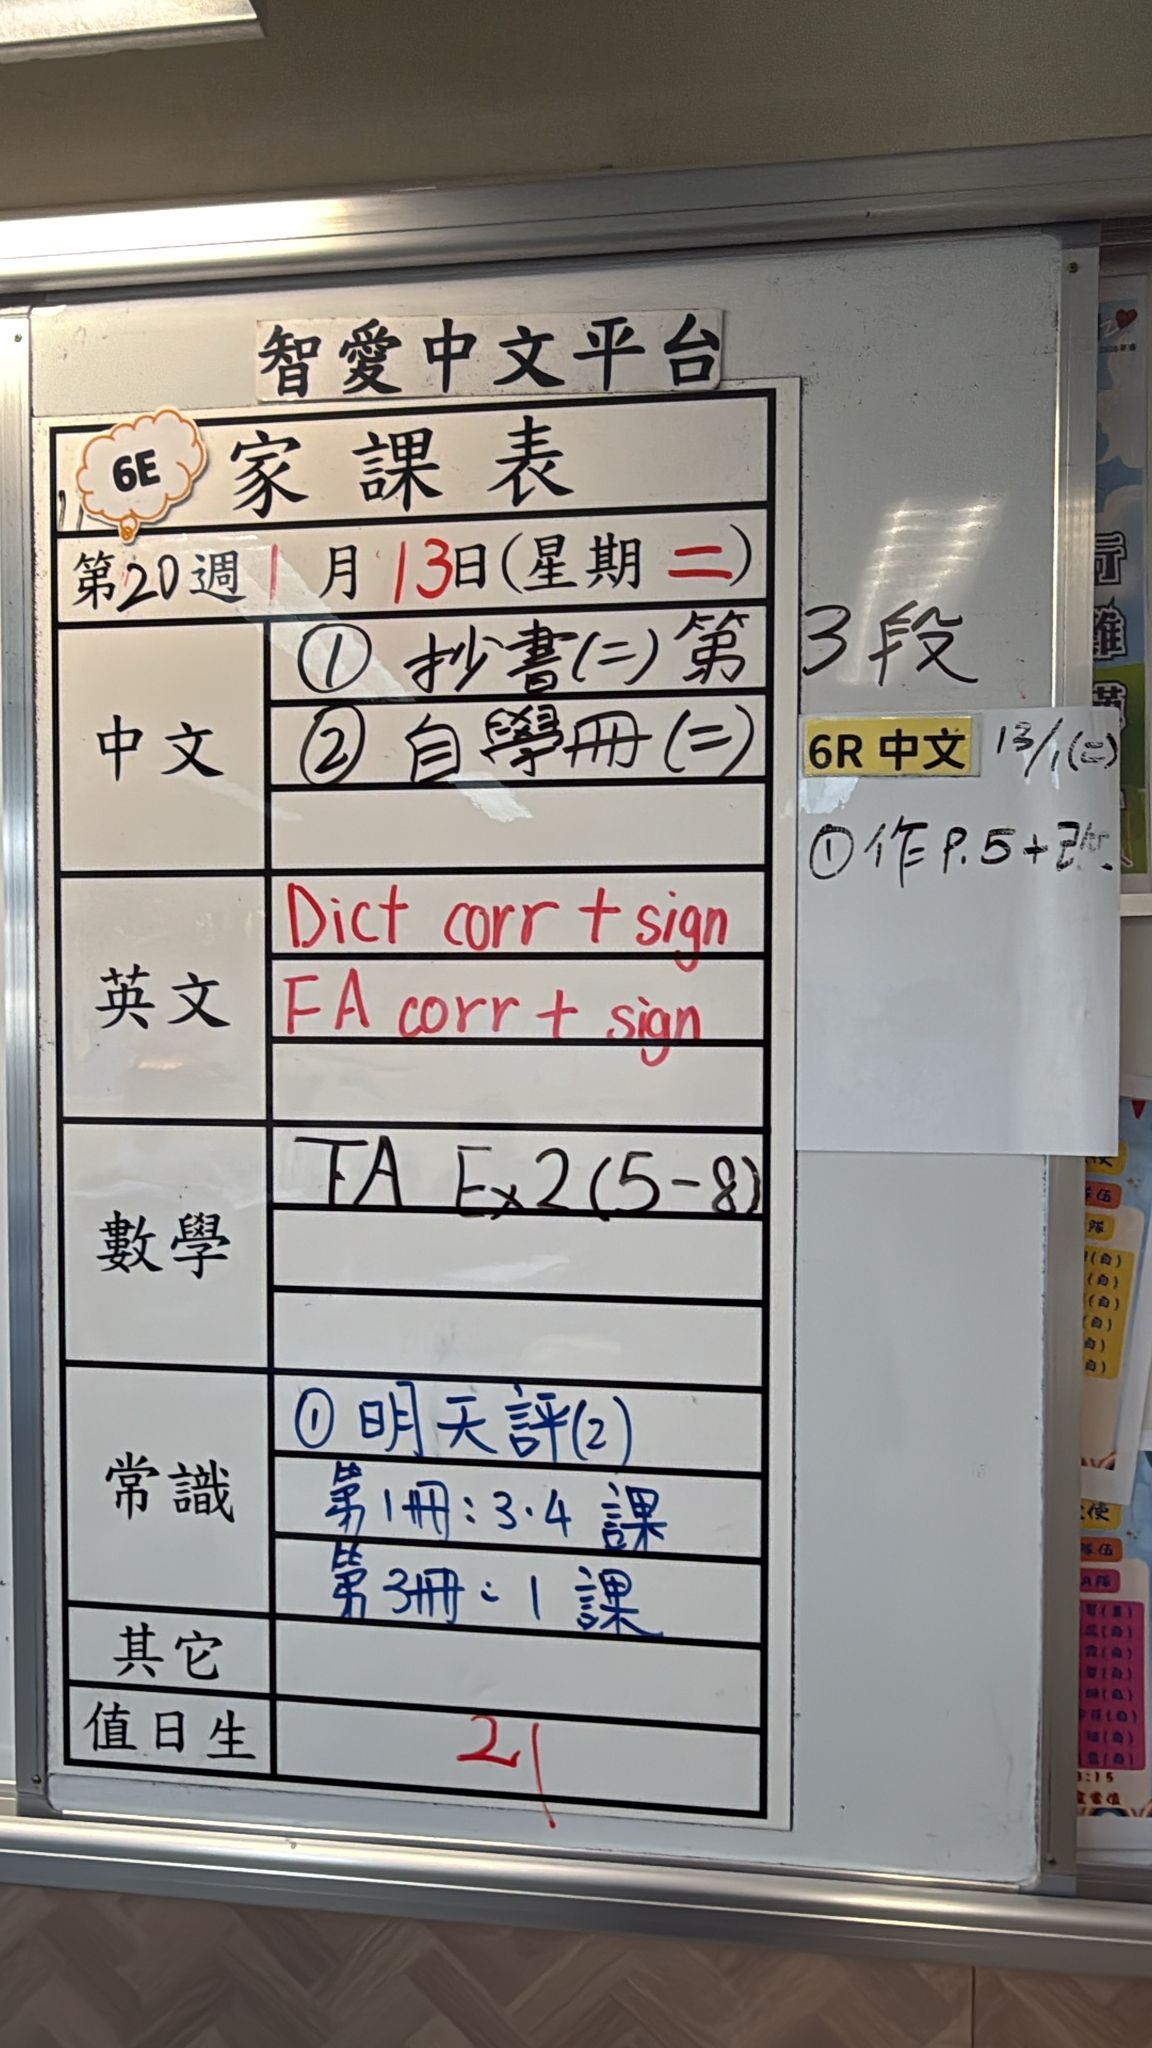 智愛中文平台
6E
家課表
第20週1月13日(星期二)
中文
① 抄書(二)第3段
② 自學冊(二)
6R 中文 13/1(二)
①作 P.5+改
英文
Dict corr + sign
FA corr + sign
數學
FA Ex2(5-8)
常識
① 明天評(2)
第1冊:3.4 課
第3冊:1 課
其它
值日生
21